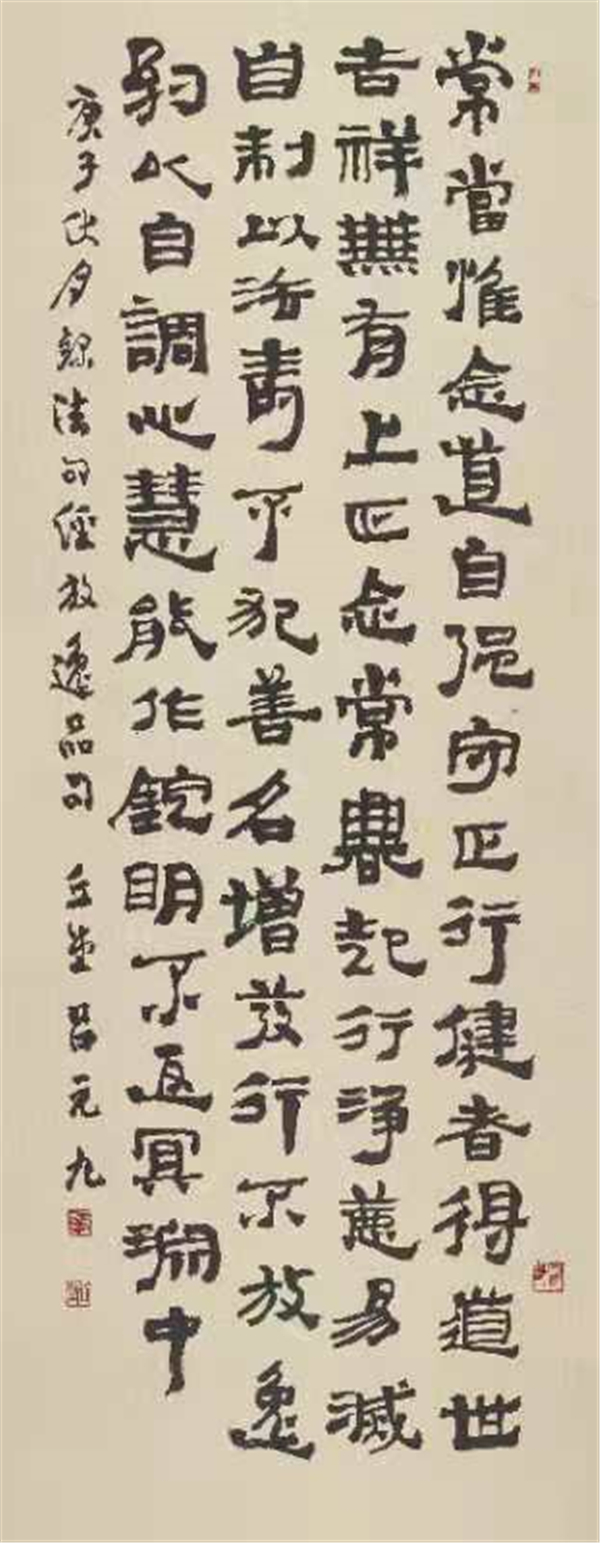 常當惟念道自强守正行健者得道世
吉祥無有上正念常興起行淨惡易滅
自制以法壽不犯善名增發行不放逸
約以自調心慧能作錠明不返冥淵中
庚子伏月錄法句經放逸品句 呂元九